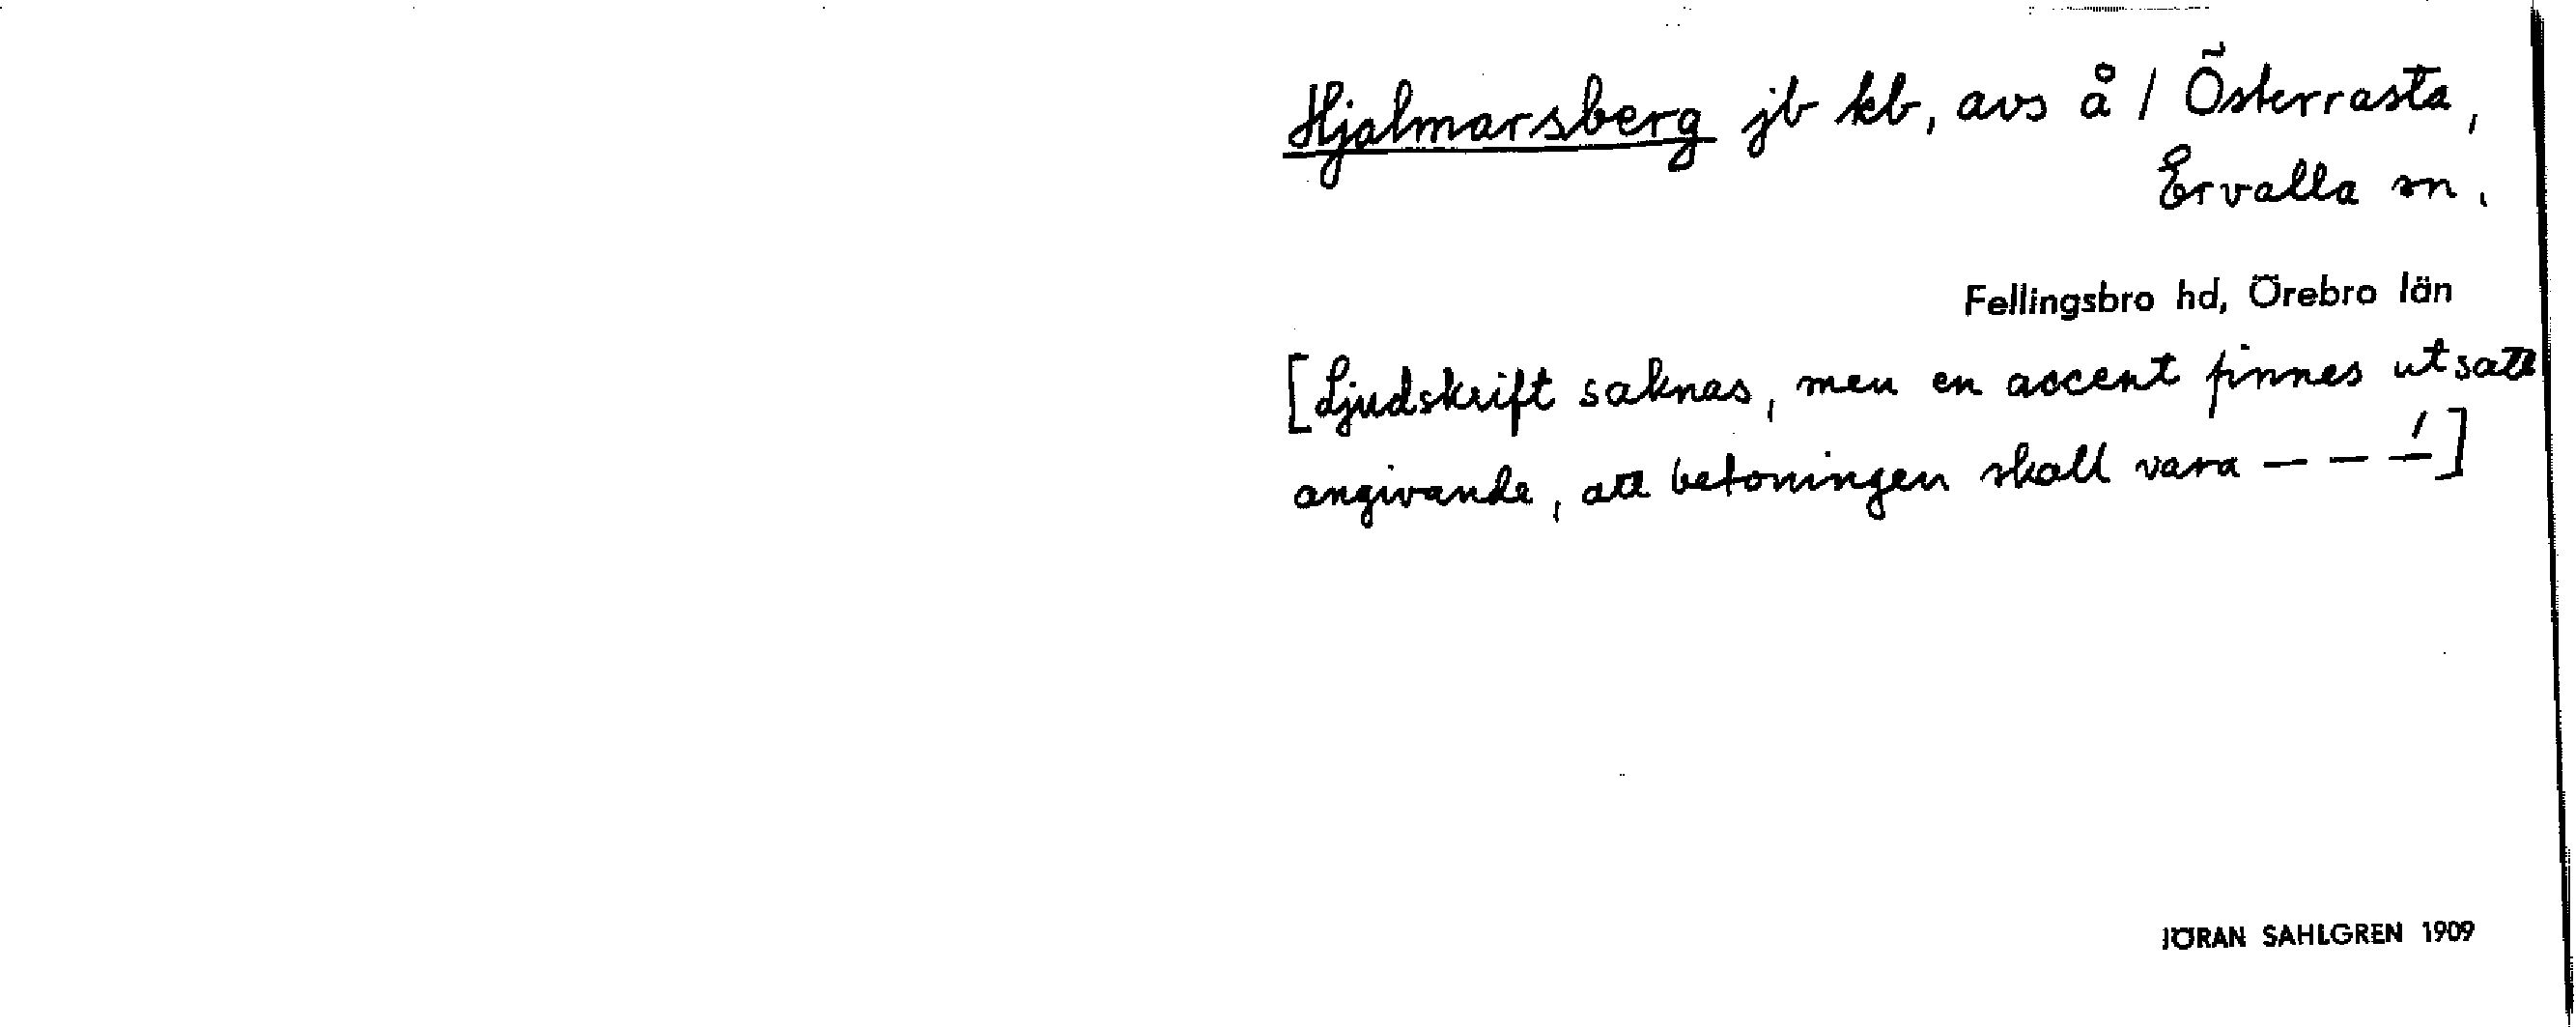 Hjalmarsberg jb kb, avs å / Österrasta,
Ervalla sn.
Fellingsbro hd, Örebro län
[Ljudskrift saknas, men en accent finnes utsatt
angivande, att betoningen skall vara – – –́]
JÖRAN SAHLGREN 1909